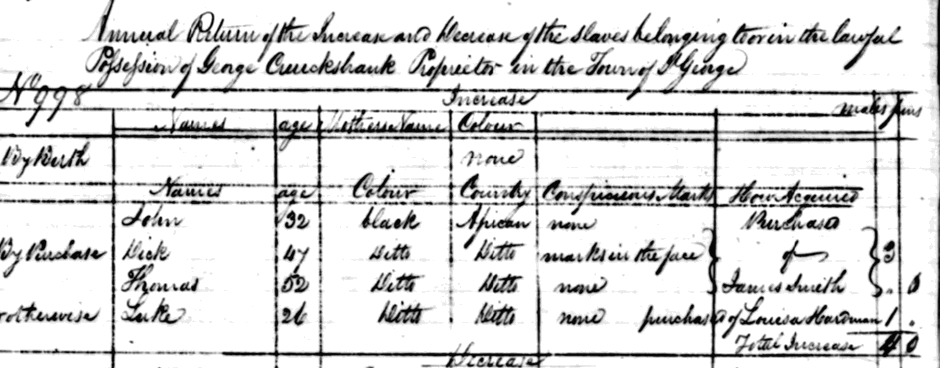 Annual Return of the Increase and Decrease of the Slaves belonging to or in the lawful
Possession of George Cruickshank Proprietor in the Town of St George
No 998
Increase males fems
Names age Mothers Name Colour
By Birth none
Names age Colour Country Conspicuous Marks How Acquired
John 32 black African none Purchased
By Purchase Dick 47 Ditto Ditto marks in the face of 3
Thomas 52 Ditto Ditto none James Smith . 0
or otherwise Luke 26 Ditto Ditto none purchased of Louisa Hardman 1 .
Total Increase 4 0
Decrease